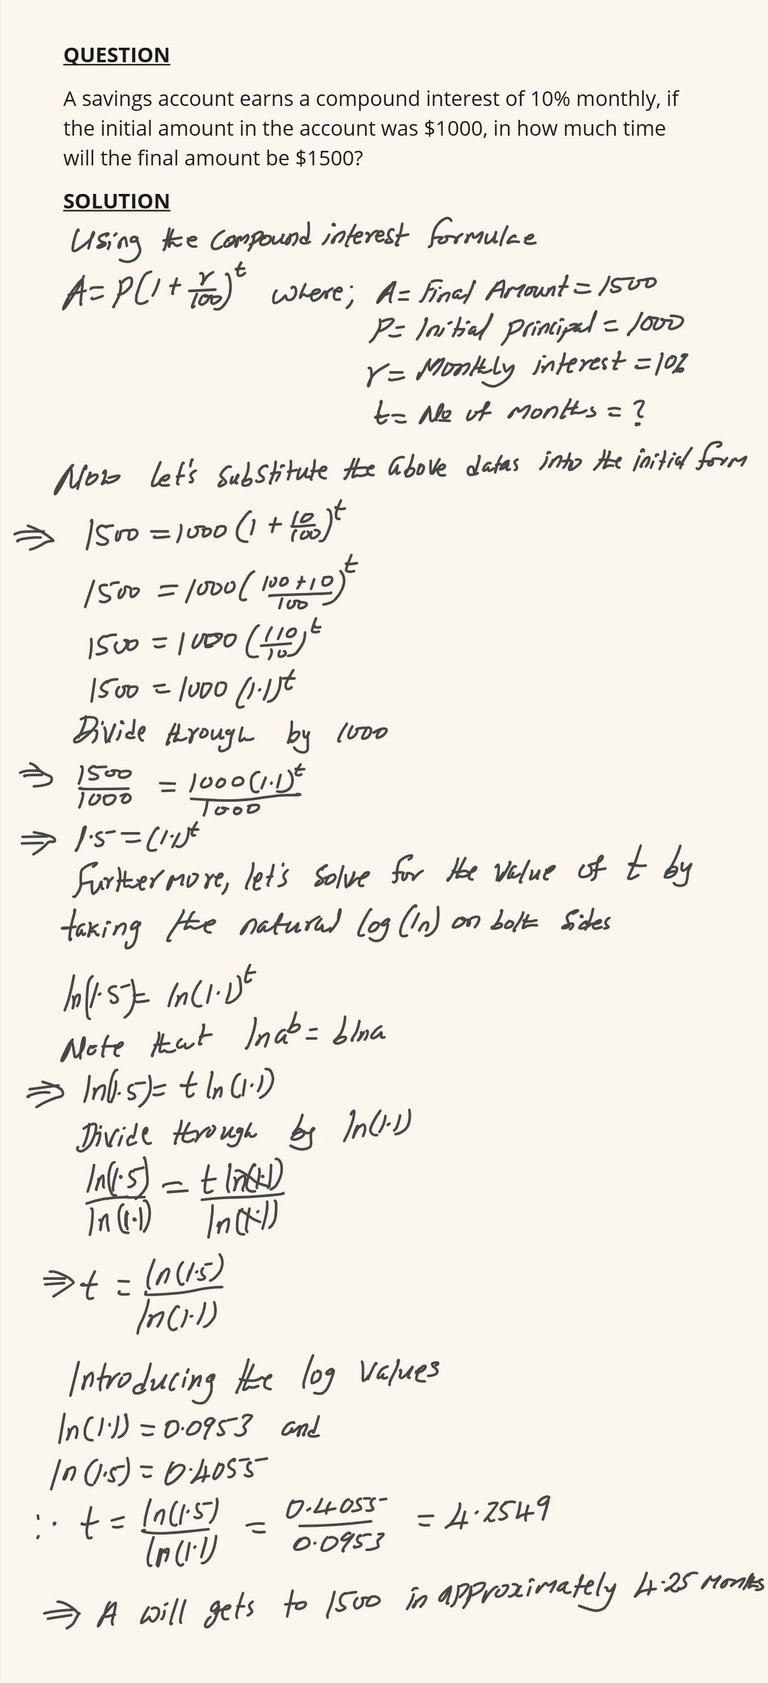 QUESTION
A savings account earns a compound interest of 10% monthly, if
the initial amount in the account was $1000, in how much time
will the final amount be $1500?
SOLUTION
Using the compound interest formulae
A = P(1 + r/100)^t where; A = Final Amount = 1500
P = Initial principal = 1000
r = Monthly interest = 10%
t = No of months = ?
Now let's substitute the above datas into the initial form
⇒ 1500 = 1000 (1 + 10/100)^t
1500 = 1000 ((100+10)/100)^t
1500 = 1000 (110/10)^t
1500 = 1000 (1.1)^t
Divide through by 1000
⇒ 1500/1000 = 1000(1.1)^t/1000
⇒ 1.5 = (1.1)^t
Furthermore, let's solve for the value of t by
taking the natural log (ln) on both sides
ln(1.5) = ln(1.1)^t
Note that ln a^b = b ln a
⇒ ln(1.5) = t ln(1.1)
Divide through by ln(1.1)
ln(1.5)/ln(1.1) = t ln(1.1)/ln(1.1)
⇒ t = ln(1.5)/ln(1.1)
Introducing the log values
ln(1.1) = 0.0953 and
ln(1.5) = 0.4055
∴ t = ln(1.5)/ln(1.1) = 0.4055/0.0953 = 4.2549
⇒ A will gets to 1500 in approximately 4.25 Months